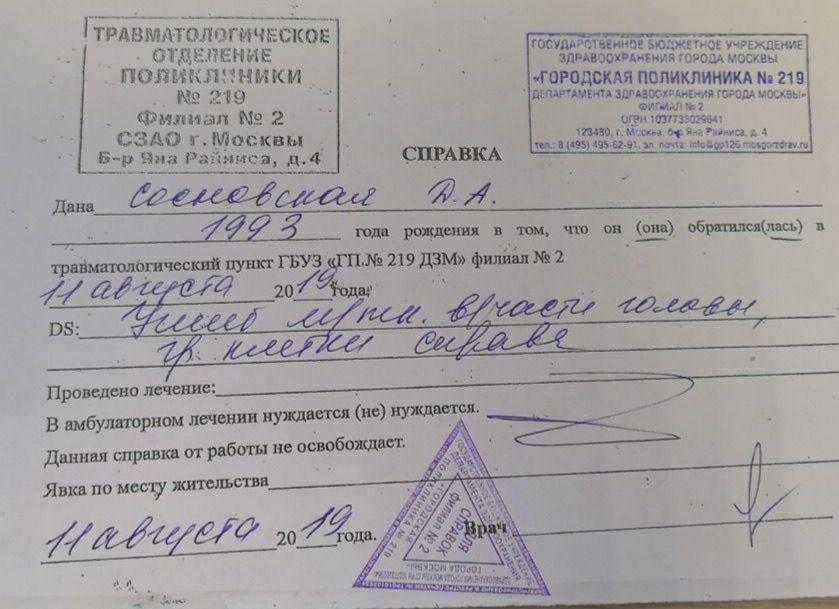 ТРАВМАТОЛОГИЧЕСКОЕ
ОТДЕЛЕНИЕ
ПОЛИКЛИНИКИ
№ 219
Филиал № 2
СЗАО г.Москвы
Б-р Яна Райниса, д.4
ГОСУДАРСТВЕННОЕ БЮДЖЕТНОЕ УЧРЕЖДЕНИЕ
ЗДРАВООХРАНЕНИЯ ГОРОДА МОСКВЫ
«ГОРОДСКАЯ ПОЛИКЛИНИКА № 219
ДЕПАРТАМЕНТА ЗДРАВООХРАНЕНИЯ ГОРОДА МОСКВЫ»
ФИЛИАЛ № 2
ОГРН 1037733029641
123480, г. Москва, б-р Яна Райниса, д. 4
тел.: 8 (495) 495-62-91, эл. почта: info@gp126.mosgorzdrav.ru
СПРАВКА
Дана Сосновская Д.А.
1993 года рождения в том, что он (она) обратился(лась) в
травматологический пункт ГБУЗ «ГП.№ 219 ДЗМ» филиал № 2
11 августа 2019 года,
DS: Ушиб м/тк. в/части головы,
гр. клетки справа
Проведено лечение:
В амбулаторном лечении нуждается (не) нуждается.
Данная справка от работы не освобождает.
Явка по месту жительства
11 августа 2019 года. Врач
ДЛЯ
СПРАВОК
филиал № 2